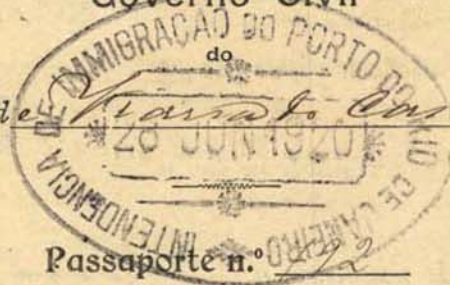 Governo Civil
do
de Vianna do Cas
INTENDENCIA DE IMMIGRAÇÃO DO PORTO DO RIO DE JANEIRO
28 JUN 1920
Passaporte n.º